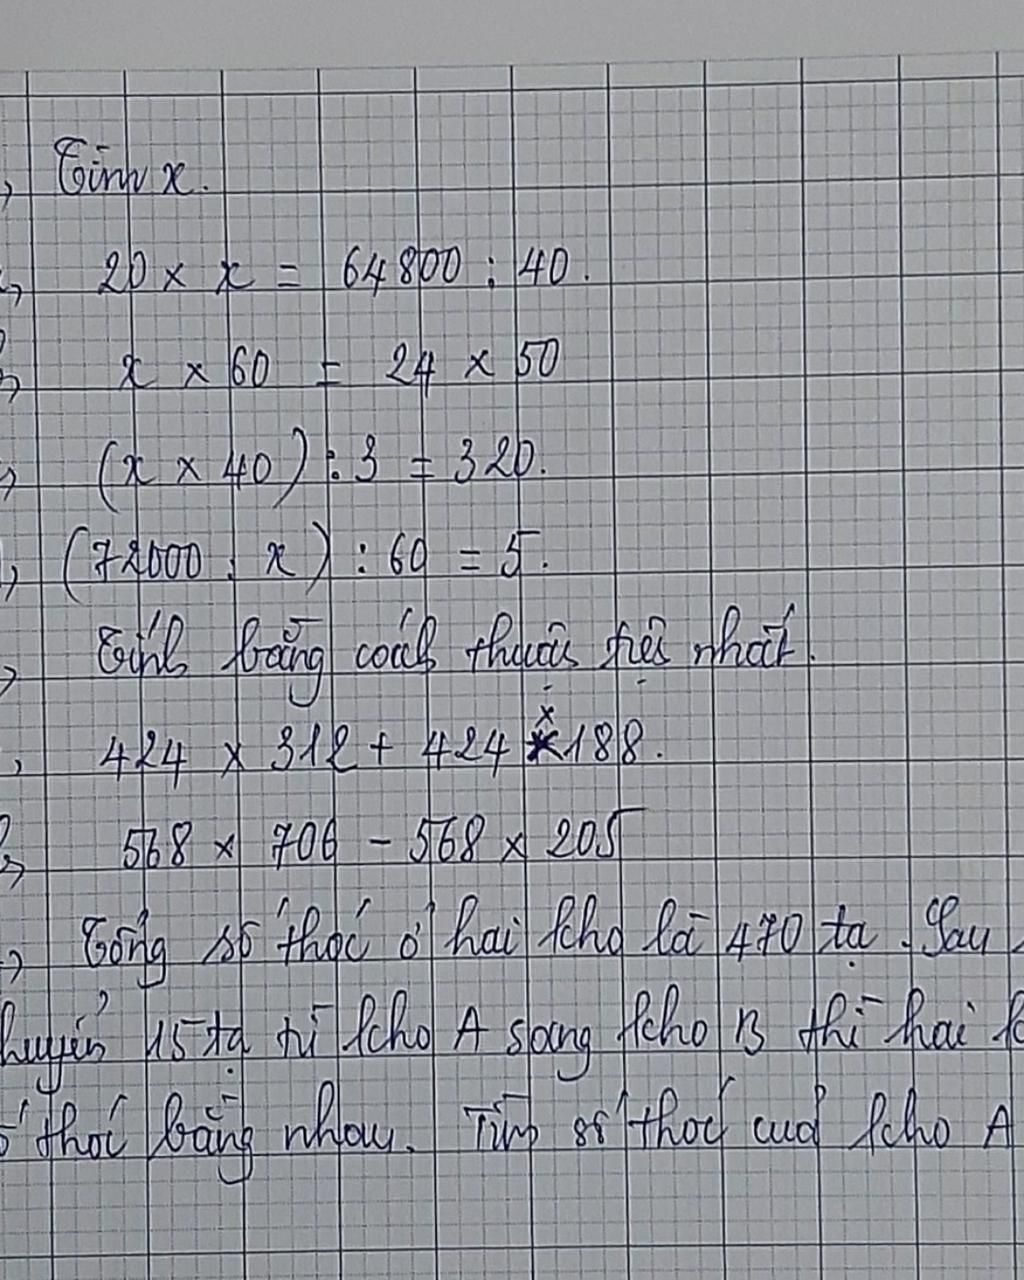 Tìm x.
20 × x = 64800 : 40.
x × 60 = 24 × 50
(x × 40) : 3 = 320.
(72000 : x) : 60 = 5.
Tính bằng cách thuận tiện nhất.
424 × 312 + 424 × 188.
568 × 706 - 568 × 205
Tổng số thóc ở hai kho là 470 tạ. Sau
15 tạ từ kho A sang kho B thì hai
thóc bằng nhau. Tìm số thóc của kho A